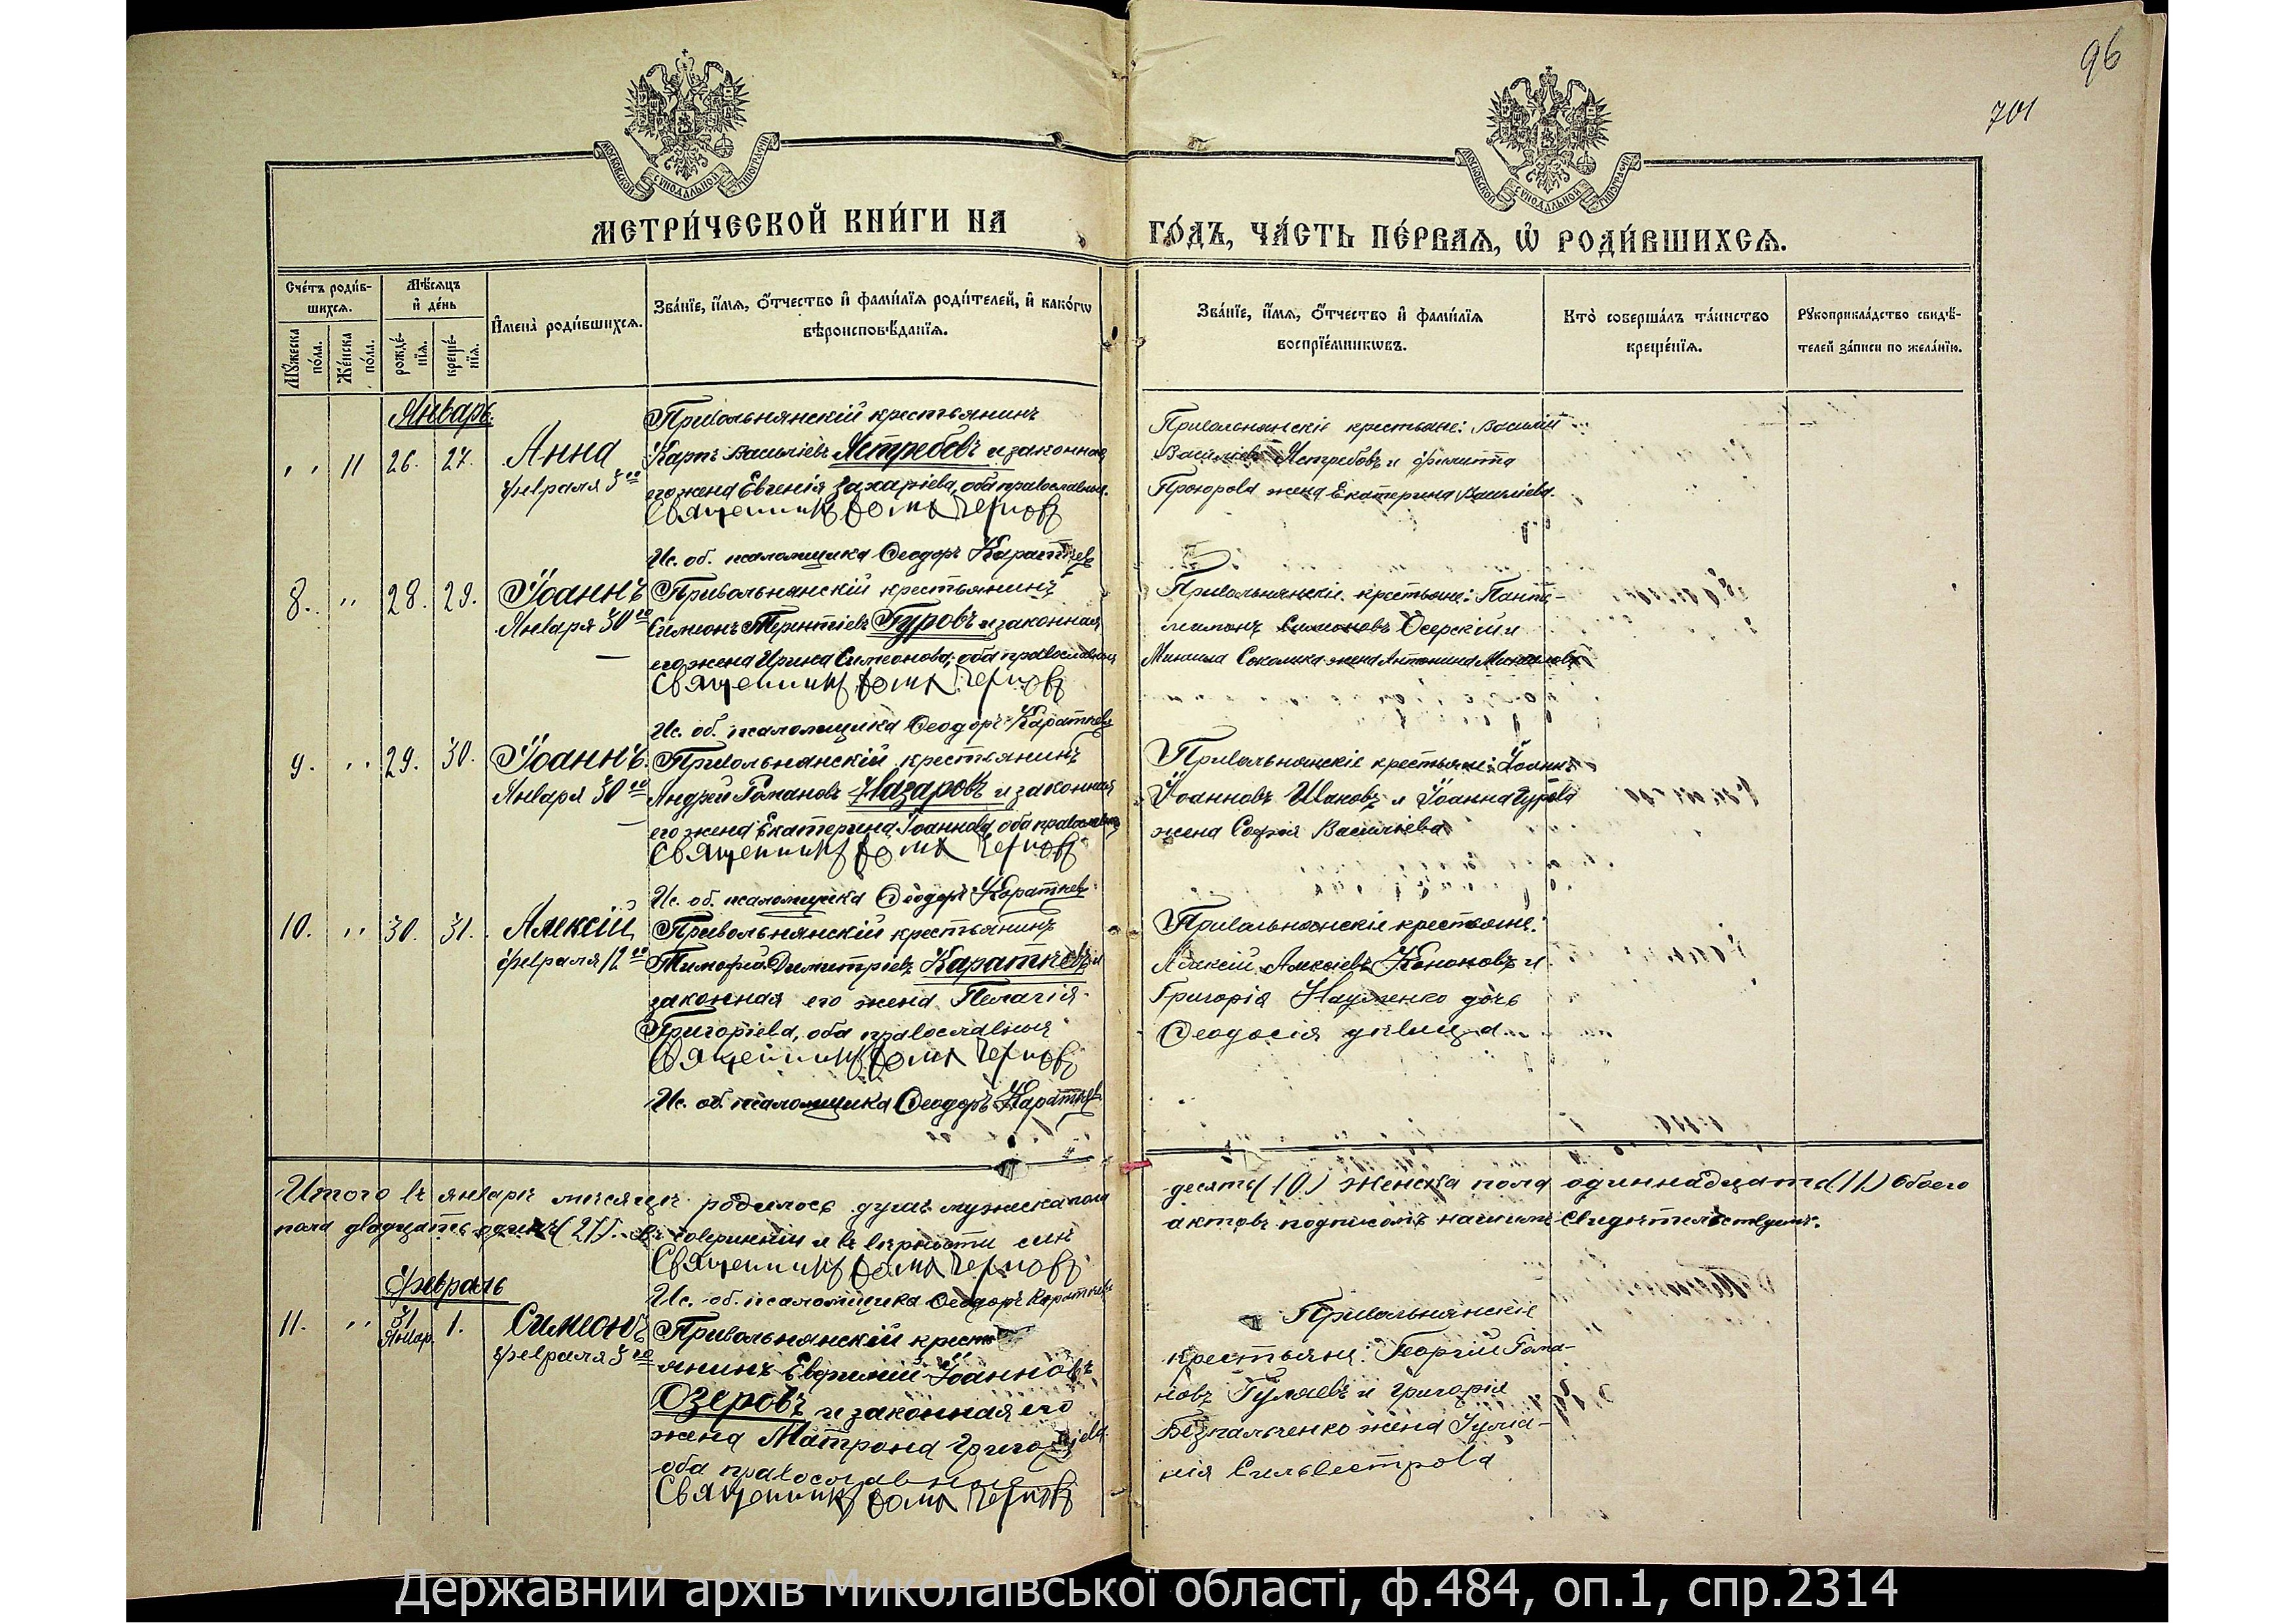 96
701
МОСКОВСКОЙ СѴНОДАЛЬНОЙ ТИПОГРАФІИ
МОСКОВСКОЙ СѴНОДАЛЬНОЙ ТИПОГРАФІИ
МЕТРИ́ЧЕСКОЙ КНИ́ГИ НА ГО́ДЪ, ЧА́СТЬ ПЕ́РВАѦ, Ѡ҆ РОДИ́ВШИХСѦ.
Сче́тъ роди́вшихсѧ.
Мꙋ́жеска по́ла.
Же́нска по́ла.
Мѣ́сѧцъ и҆ де́нь
рожде́нїѧ.
креще́нїѧ.
И҆мена̀ роди́вшихсѧ.
Зва́нїе, и҆́мѧ, ѻ҆́тчество и҆ фами́лїѧ роди́телей, и҆ како́гѡ
вѣроисповѣ́данїѧ.
Зва́нїе, и҆́мѧ, ѻ҆́тчество и҆ фами́лїѧ
воспрїе́мникѡвъ.
Кто̀ соверша́лъ та́инство
креще́нїѧ.
Рꙋкоприкла́дство свидѣ́-
телей за́писи по жела́нїю.
Январь.
11 26. 27. Анна
февраля 3го
Привольнянскій крестьянинъ
Карпъ Васильевъ Ястребовъ и законная
его жена Евгенія Захаріева, оба православные.
Священникъ Фома Черновъ
Ис. об. псаломщика Ѳеодоръ Каратѣевъ
Привольнянскіе крестьяне: Василій
Васильевъ Ястребовъ и Филиппа
жена Екатерина Васильева.
8. 28. 29. Іоаннъ
Января 30го
Привольнянскій крестьянинъ
Симеонъ Терентіевъ Гуровъ и законная
его жена Ирина Симеонова, оба православные
Священникъ Фома Черновъ
Ис. об. псаломщика Ѳеодоръ Каратѣевъ
Привольнянскіе крестьяне: Панте-
леимонъ Симеоновъ Озерскій и
Михаила Соколика жена Антонина Михайлова
9. 29. 30. Іоаннъ.
Января 30го
Привольнянскій крестьянинъ
Андрей Романовъ Назаровъ и законная
его жена Екатерина Іоаннова, оба православные
Священникъ Фома Черновъ
Ис. об. псаломщика Ѳеодоръ Каратѣевъ
Привольнянскіе крестьяне: Іоаннъ
Іоанновъ Ивановъ и Іоанна Гурова
жена Софія Васильева
10. 30. 31. Алексій
февраля 12го
Привольнянскій крестьянинъ
Тимофей Димитріевъ Каратѣевъ и
законная его жена Пелагія
Григоріева, оба православныя
Священникъ Фома Черновъ
Ис. об. псаломщика Ѳеодоръ Каратѣевъ
Привольнянскіе крестьяне:
Алексій Алексіевъ Кононовъ и
Григорія Науменко дочь
Ѳеодосія дѣвица
Итого въ январѣ мѣсяцѣ родилось душъ мужска пола десять (10) женска пола одиннадцать (11) обоего
пола двадцать одинъ (21). Въ совершеніи и въ вѣрности сихъ актовъ подписомъ нашимъ свидѣтельствуемъ.
Священникъ Фома Черновъ
Ис. об. псаломщика Ѳеодоръ Каратѣевъ
Февраль
11. 31 Январ. 1. Симеонъ
февраля 3го
Привольнянскій кресть
янинъ Евфимій Іоанновъ
Озеровъ и законная его
жена Матрона Григоріева
оба православныя
Священникъ Фома Черновъ
Привольнянскіе
крестьяне: Георгій Рома-
новъ Гуляевъ и Григорія
Безпальченко жена Іуліа-
нія Сильвестрова
Державний архів Миколаївської області, ф.484, оп.1, спр.2314